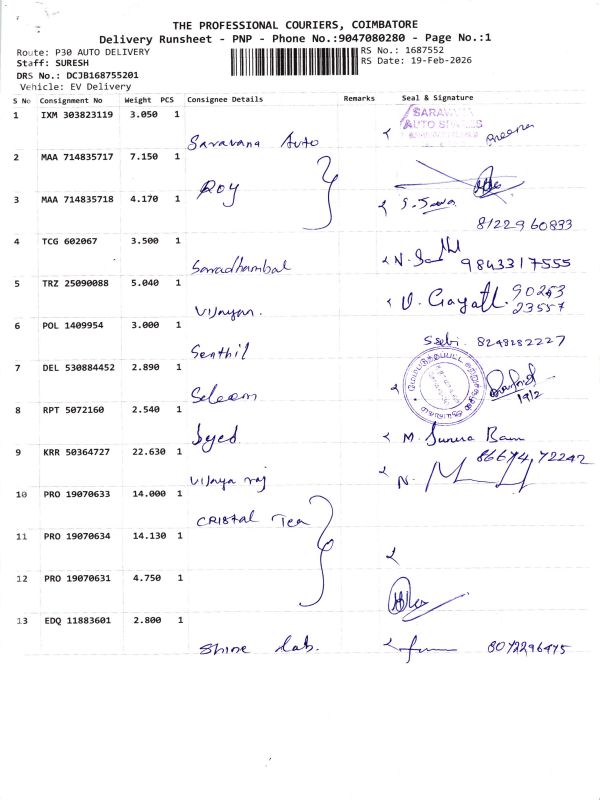 THE PROFESSIONAL COURIERS, COIMBATORE
Delivery Runsheet - PNP - Phone No.:9047080280 - Page No.:1
Route: P30 AUTO DELIVERY
RS No.: 1687552
Staff: SURESH
RS Date: 19-Feb-2026
DRS No.: DCJB168755201
Vehicle: EV Delivery
S No Consignment No Weight PCS Consignee Details Remarks Seal & Signature
1 IXM 303823119 3.050 1 Saravana Auto
SARAVANA
AUTO
2 MAA 714835717 7.150 1 Roy
3 MAA 714835718 4.170 1
8122960833
4 TCG 602067 3.500 1 Saradhambal
9843317555
5 TRZ 25090088 5.040 1 Vijayan.
V. Gayath. 90253
23557
6 POL 1409954 3.000 1 Senthil
8248182227
7 DEL 530884452 2.890 1 Saleem
19/2
8 RPT 5072160 2.540 1 Syed
M.
9 KRR 50364727 22.630 1 Vijaya raj
86674 72242
N.
10 PRO 19070633 14.000 1 Cristal Tea
11 PRO 19070634 14.130 1
12 PRO 19070631 4.750 1
13 EDQ 11883601 2.800 1 Shine Lab.
8072296475